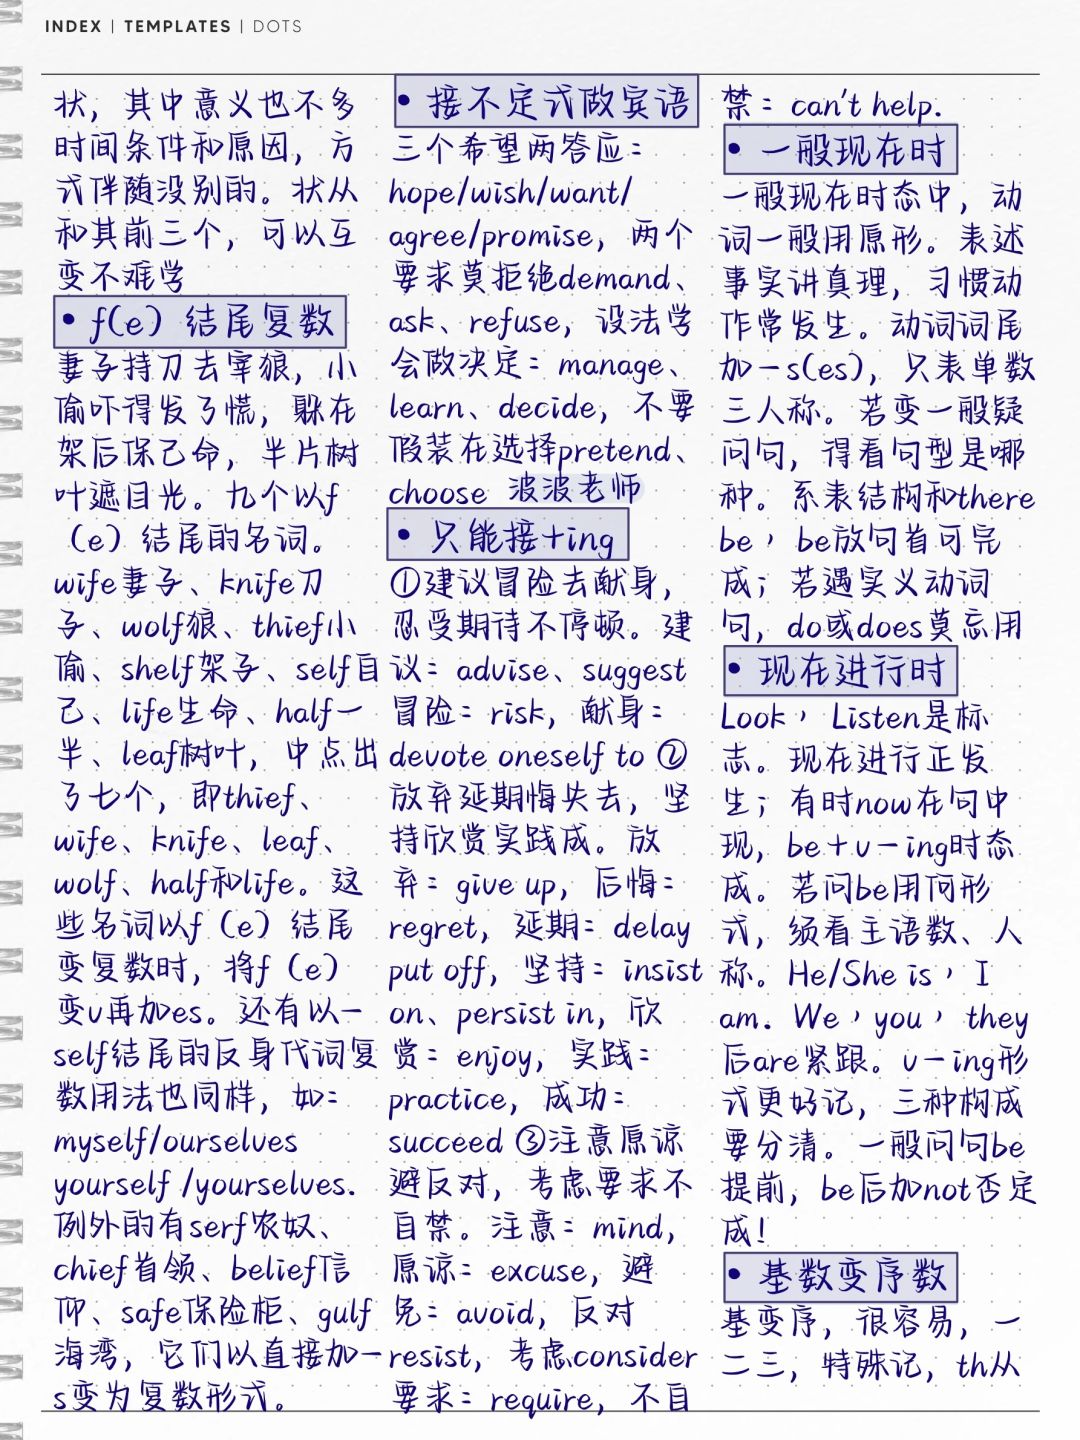 INDEX | TEMPLATES | DOTS
状，其中意义也不多
时间条件和原因，方
式伴随没别的。状从
和其前三个，可以互
变不难学
• f(e）结尾复数
妻子持刀去宰狼，小
偷吓得发了慌，躲在
架后保己命，半片树
叶遮目光。九个以f
（e）结尾的名词。
wife妻子、knife刀
子、wolf狼、thief小
偷、shelf架子、self自
己、life生命、half一
半、leaf树叶，中点出
了七个，即thief、
wife、knife、leaf、
wolf、half和life。这
些名词以f（e）结尾
变复数时，将f（e）
变v再加es。还有以一
self结尾的反身代词复
数用法也同样，如：
myself/ourselves
yourself /yourselves.
例外的有serf农奴、
chief首领、belief信
仰、safe保险柜、gulf
海湾，它们以直接加一
s变为复数形式。
• 接不定式做宾语
三个希望两答应：
hope/wish/want/
agree/promise，两个
要求莫拒绝demand、
ask、refuse，设法学
会做决定：manage、
learn、decide，不要
假装在选择pretend、
choose 波波老师
• 只能接+ing
①建议冒险去献身，
忍受期待不停顿。建
议：advise、suggest
冒险：risk，献身：
devote oneself to ②
放弃延期悔失去，坚
持欣赏实践成。放
弃：give up，后悔：
regret，延期：delay
put off，坚持：insist
on、persist in，欣
赏：enjoy，实践：
practice，成功：
succeed ③注意原谅
避反对，考虑要求不
自禁。注意：mind，
原谅：excuse，避
免：avoid，反对
resist，考虑consider
要求：require，不自
禁：can't help.
• 一般现在时
一般现在时态中，动
词一般用原形。表述
事实讲真理，习惯动
作常发生。动词词尾
加一s(es)，只表单数
三人称。若变一般疑
问句，得看句型是哪
种。系表结构和there
be，be放句首可完
成；若遇实义动词
句，do或does莫忘用
• 现在进行时
Look，Listen是标
志。现在进行正发
生；有时now在句中
现，be＋v－ing时态
成。若问be用何形
式，须看主语数、人
称。He/She is，I
am. We，you，they
后are紧跟。v－ing形
式更好记，三种构成
要分清。一般问句be
提前，be后加not否定
成!
• 基数变序数
基变序，很容易，一
二三，特殊记，th从